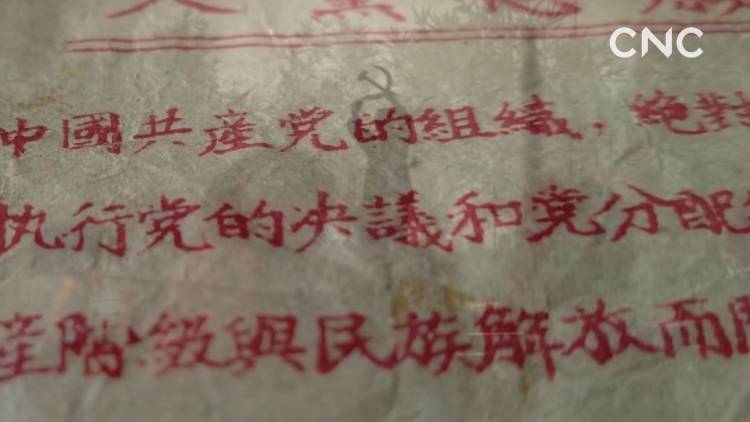 CNC
中國共產党的組織,絶對
执行党的决議和党分配
產階級與民族解放而